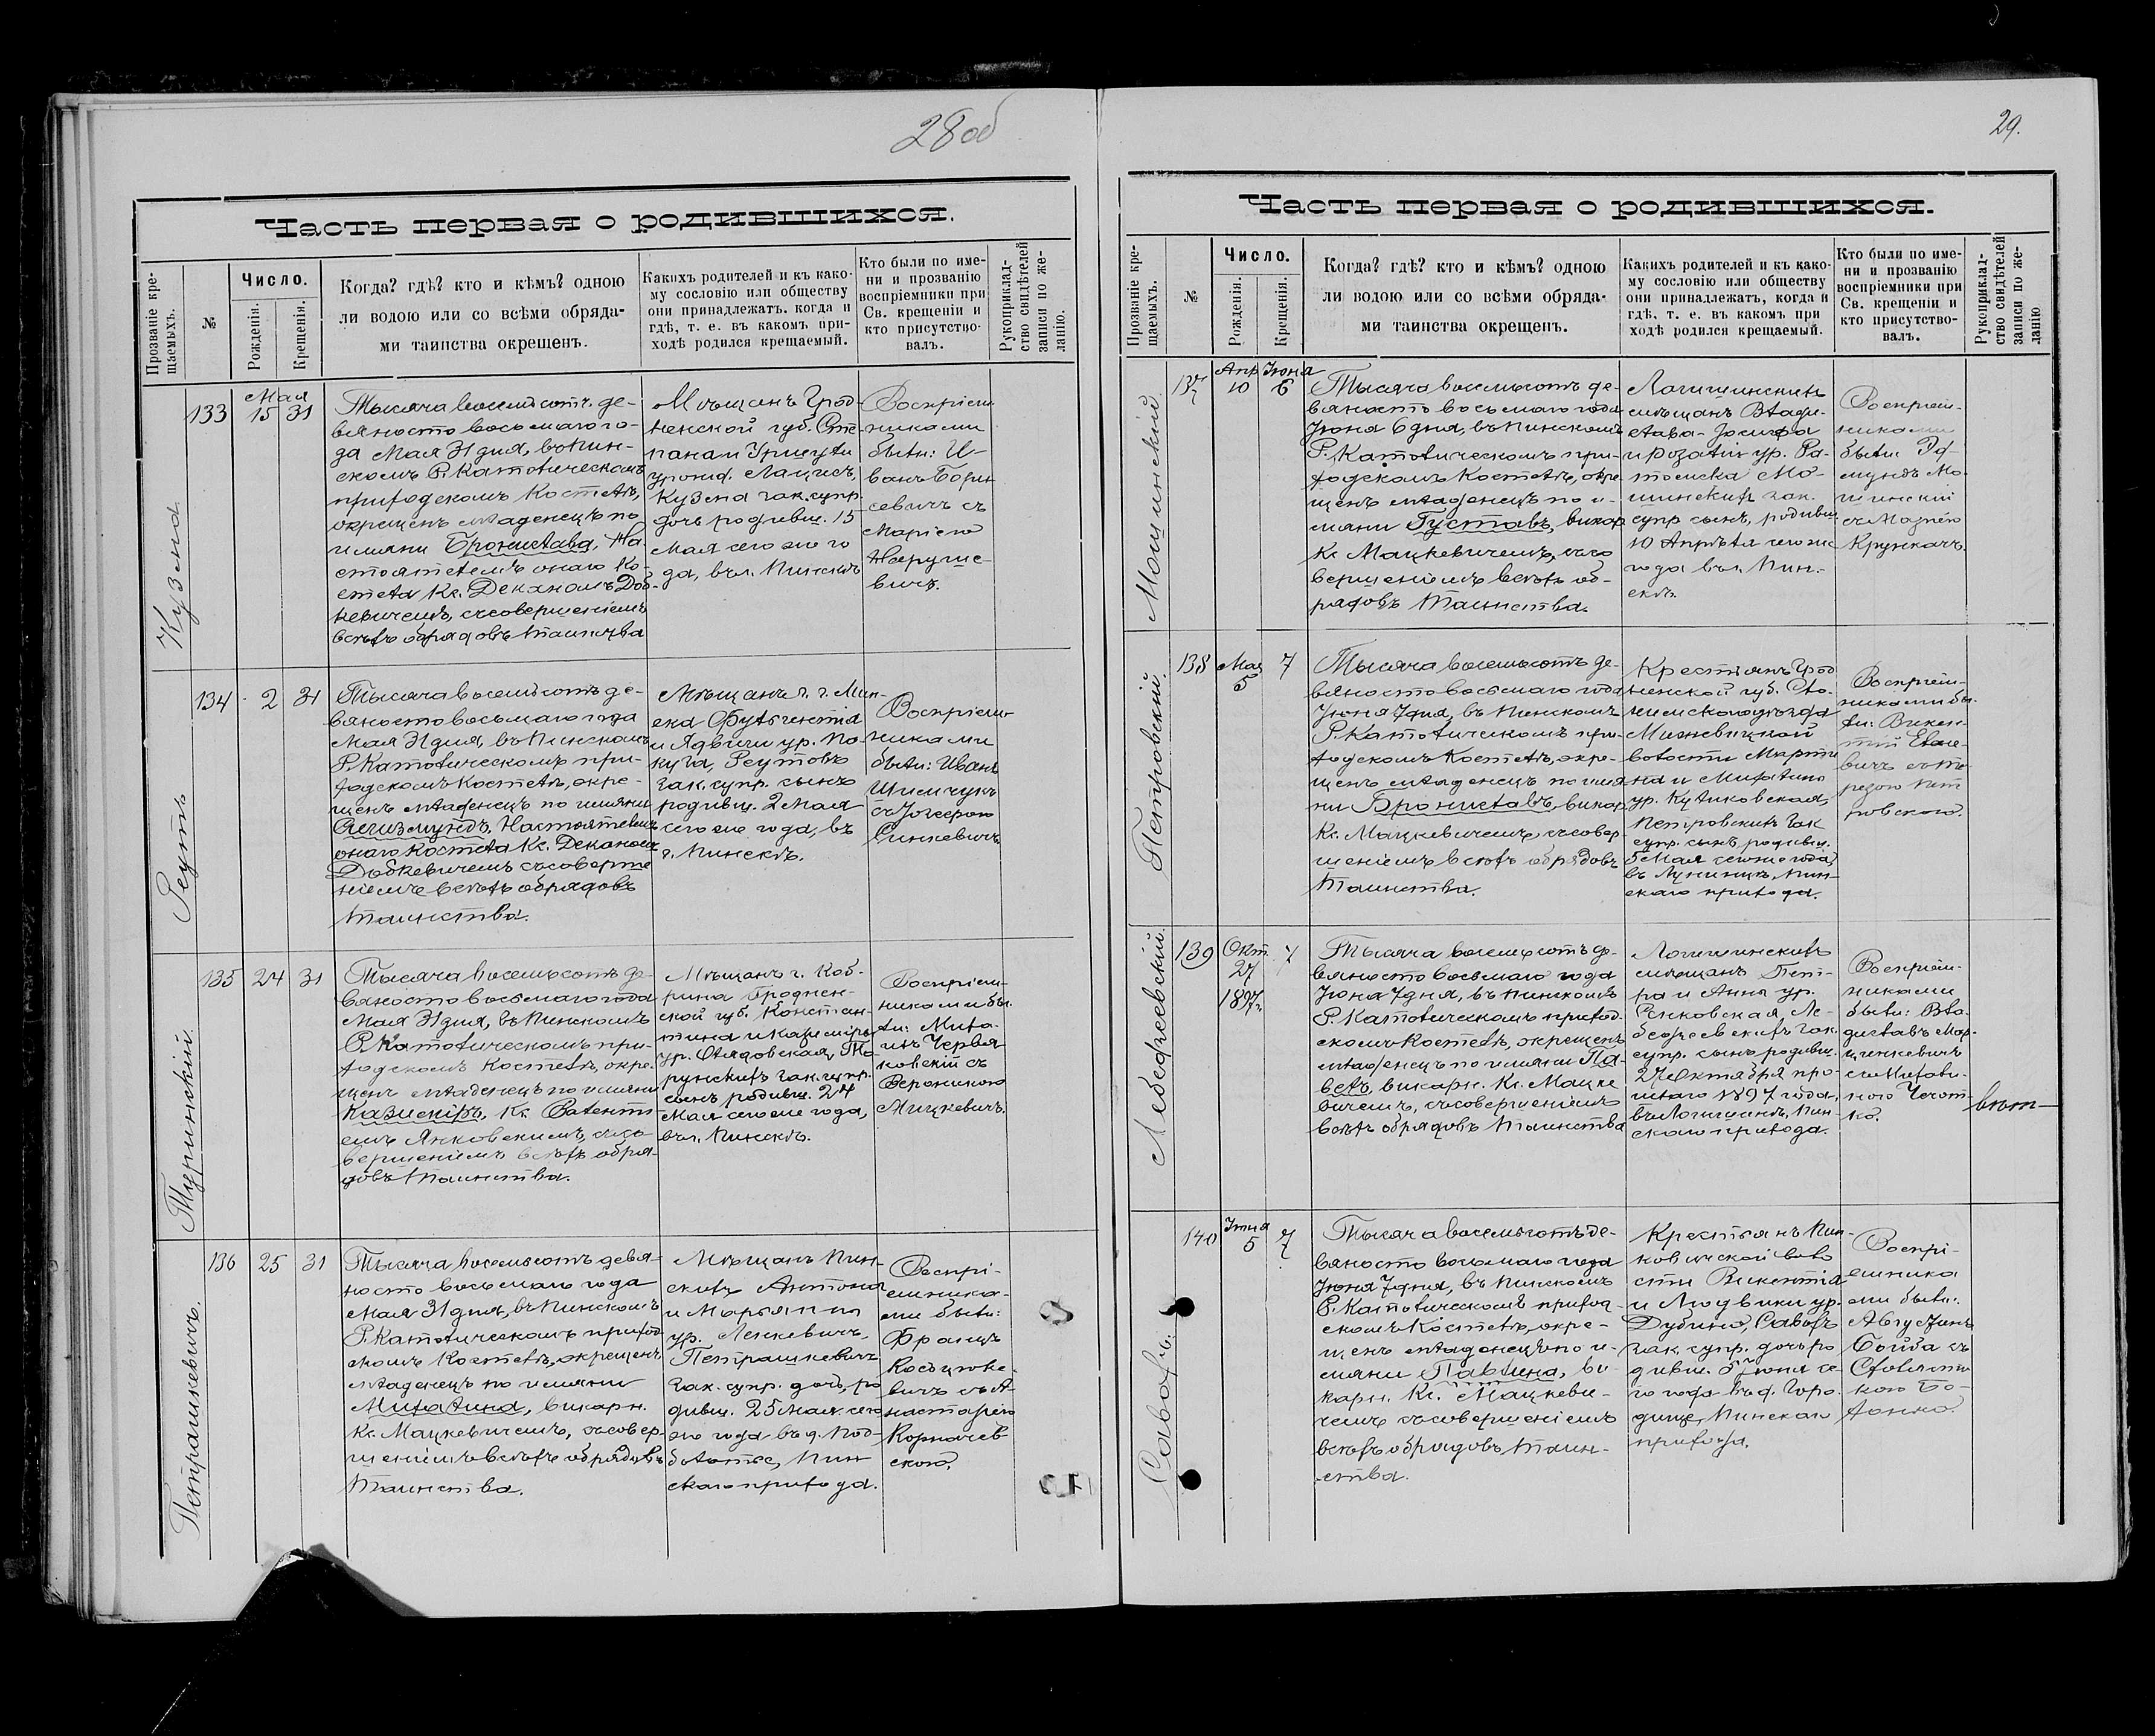 28 об
Часть первая о родившихся.
Прозваніе кре-
щаемыхъ.
№
Число.
Рожденія.
Крещенія.
Когда? гдѣ? кто и кѣмъ? одною
ли водою или со всѣми обряда-
ми таинства окрещенъ.
Какихъ родителей и къ како-
му сословію или обществу
они принадлежатъ, когда и
гдѣ, т. е. въ какомъ при-
ходѣ родился крещаемый.
Кто были по име-
ни и прозванію
воспріемники при
Св. крещеніи и
кто присутство-
валъ.
Рукоприклад-
ство свидѣтелей
записи по же-
ланію.
Кузена
133
Мая
15 31
Тысяча восемьсотъ де-
вяносто восьмаго го-
да Мая 31 дня, въ Пин-
скомъ Р. Католическомъ
приходскомъ Костелѣ,
окрещенъ младенецъ по
имяни Брониславa, На-
стоятелемъ онаго Ко-
стела Кс. Деканомъ Доб-
кевичемъ, съ совершеніемъ
всѣхъ обрядовъ таинства
Мѣщанъ Грод-
ненской губ. Сте-
пана и Уршули
урожд.
Кузена зак. супр.
дочь родивш. 15
Мая сего же го
да, въ г. Пинскѣ
Воспріем-
никами
были: И-
ванъ Бори
севичъ съ
Маріею
Наруше-
вичъ.
Реутъ
134 2 31
Тысяча восемьсотъ де-
вяносто восьмаго года
Мая 31 дня, въ Пинскомъ
Р. Католическомъ при-
ходскомъ Костелѣ, окре-
щенъ младенецъ по имяни
Сигизмундъ, Настоятелемъ
онаго Костела Кс. Деканомъ
Добкевичемъ съ соверше
ніемъ всѣхъ обрядовъ
таинства.
Мѣщанъ г. Мин-
ска
и Ядвиги ур. По-
Реутовъ
зак. супр. сынъ
родивш. 2 Мая
сего же года, въ
г. Пинскѣ.
Воспріем-
никами
были: Иванъ
Шимчукъ
съ Юзефою
Синкевичъ
Туринскій.
135 24 31
Тысяча восемьсотъ де-
вяносто восьмаго года
Мая 31 дня, въ Пинскомъ
Р. Католическомъ при-
ходскомъ Костелѣ, окре-
щенъ младенецъ по имяни
Казиміръ, Кс. Валенті-
емъ Янковскимъ, съ со-
вершеніемъ всѣхъ обря-
довъ таинства.
Мѣщанъ г. Коб-
рина Гроднен-
ской губ. Констан-
тина и Казиміры
ур. Ту-
ринскихъ зак. супр.
сынъ родивш. 24
Мая сего же года,
въ г. Пинскѣ.
Воспріем-
никами бы-
ли: Миха-
илъ Червя
ковскій съ
Вероникою
Мицкевичъ.
Петрашкевичъ.
136 25 31
Тысяча восемьсотъ девя-
носто восьмаго года
Мая 31 дня, въ Пинскомъ
Р. Католическомъ приход-
скомъ Костелѣ, окрещенъ
младенецъ по имяни
Михалина, викарн.
Кс. Мацкевичемъ, съ совер-
шеніемъ всѣхъ обрядовъ
таинства.
Мѣщанъ Пин-
скихъ Антона
и Марьянны
ур. Ленкевичъ,
Петрашкевичъ
зак. супр. дочь, ро
дивш. 25 Мая сего
же года въ д. Под-
болотье, Пин
скаго прихода.
Воспрі-
емника-
ми были:
Францъ
Косцюке-
вичъ съ А-
настасіею
Корначев
скою.
29.
Часть первая о родившихся.
Прозваніе кре-
щаемыхъ.
№
Число.
Рожденія.
Крещенія.
Когда? гдѣ? кто и кѣмъ? одною
ли водою или со всѣми обряда-
ми таинства окрещенъ.
Какихъ родителей и къ како-
му сословію или обществу
они принадлежатъ, когда и
гдѣ, т. е. въ какомъ при
ходѣ родился крещаемый.
Кто были по име-
ни и прозванію
воспріемники при
Св. крещеніи и
кто присутство-
валъ.
Рукоприклад-
ство свидѣтелей
записи по же-
ланію
Мошинскій.
137
Апр Іюня
10 6
Тысяча восемьсотъ де-
вяносто восьмаго года
Іюня 6 дня, въ Пинскомъ
Р. Католическомъ при-
ходскомъ Костелѣ, окре
щенъ младенецъ по и-
мяни Густавъ, викар
Кс. Мацкевичемъ, съ со
вершеніемъ всѣхъ об-
рядовъ таинства.
Логишинскихъ
мѣщанъ Влади-
слава-Іосифа
и Розаліи ур. Ра-
Мо-
шинскихъ зак.
супр сынъ, родивш.
10 Апрѣля сего же
года въ г. Пин-
скѣ.
Воспріем-
никами
были Эд-
мундъ Мо-
шинскій
съ Маріею
Кружкачъ.
Петровскій.
138
Мая
5 7
Тысяча восемьсотъ де-
вяносто восьмаго года
Іюня 7 дня, въ Пинскомъ
Р. Католическомъ при-
ходскомъ Костелѣ, окре-
щенъ младенецъ по имя
ни Брониславъ, викар,
Кс. Мацкевичемъ, съ совер-
шеніемъ всѣхъ обрядовъ
таинства.
Крестьянъ Грод
ненской губ. Сло-
нимскаго уѣзда
Мижевичской
волости Марти
на и Михалины
ур. Куликовская,
Петровскихъ зак
супр. сынъ родивш.
5 Мая сего же года
въ Лунинцѣ, Пин-
скаго прихода.
Воспріем-
никами бы-
ли: Викен-
тій
вичъ съ Те-
резою Пет
ровскою.
Лебедзевскій.
139
Окт.
27
1897г.
7
Тысяча восемьсотъ де-
вяносто восьмаго года
Іюня 7 дня, въ Пинскомъ
Р. Католическомъ приход-
скомъ Костелѣ, окрещенъ
младенецъ по имяни Па-
велъ, викарн. Кс. Мацке
вичемъ, съ совершеніемъ
всѣхъ обрядовъ таинства
Логишинскихъ
мѣщанъ Пет-
ра и Анны ур.
Ле-
бедзевскихъ зак.
супр. сынъ родивш.
27 Октября про-
шлаго 1897 года,
въ Логишинѣ, Пин-
скаго прихода.
Воспріем-
никами
были: Вла-
диславъ Мар-
цинкевичъ
съ Михали-
ною Чечот-
ко.
Савосъ.
140
Іюня
5 7
Тысяча восемьсотъ де-
вяносто восьмаго года
Іюня 7 дня, въ Пинскомъ
Р. Католическомъ приход-
скомъ Костелѣ, окре-
щенъ младенецъ по и-
мяни Павлина, ви-
карн. Кс. Мацкеви-
чемъ съ совершеніемъ
всѣхъ обрядовъ таин-
ства.
Крестьянъ Пин-
ковичской воло
сти Викентія
и Людвики ур.
зак. супр. дочь ро
дивш. 5 Іюня се-
го года въ ф. Горо-
дище, Пинскаго
прихода.
Воспрі-
емника
ми были:
Августинъ
Бойба съ